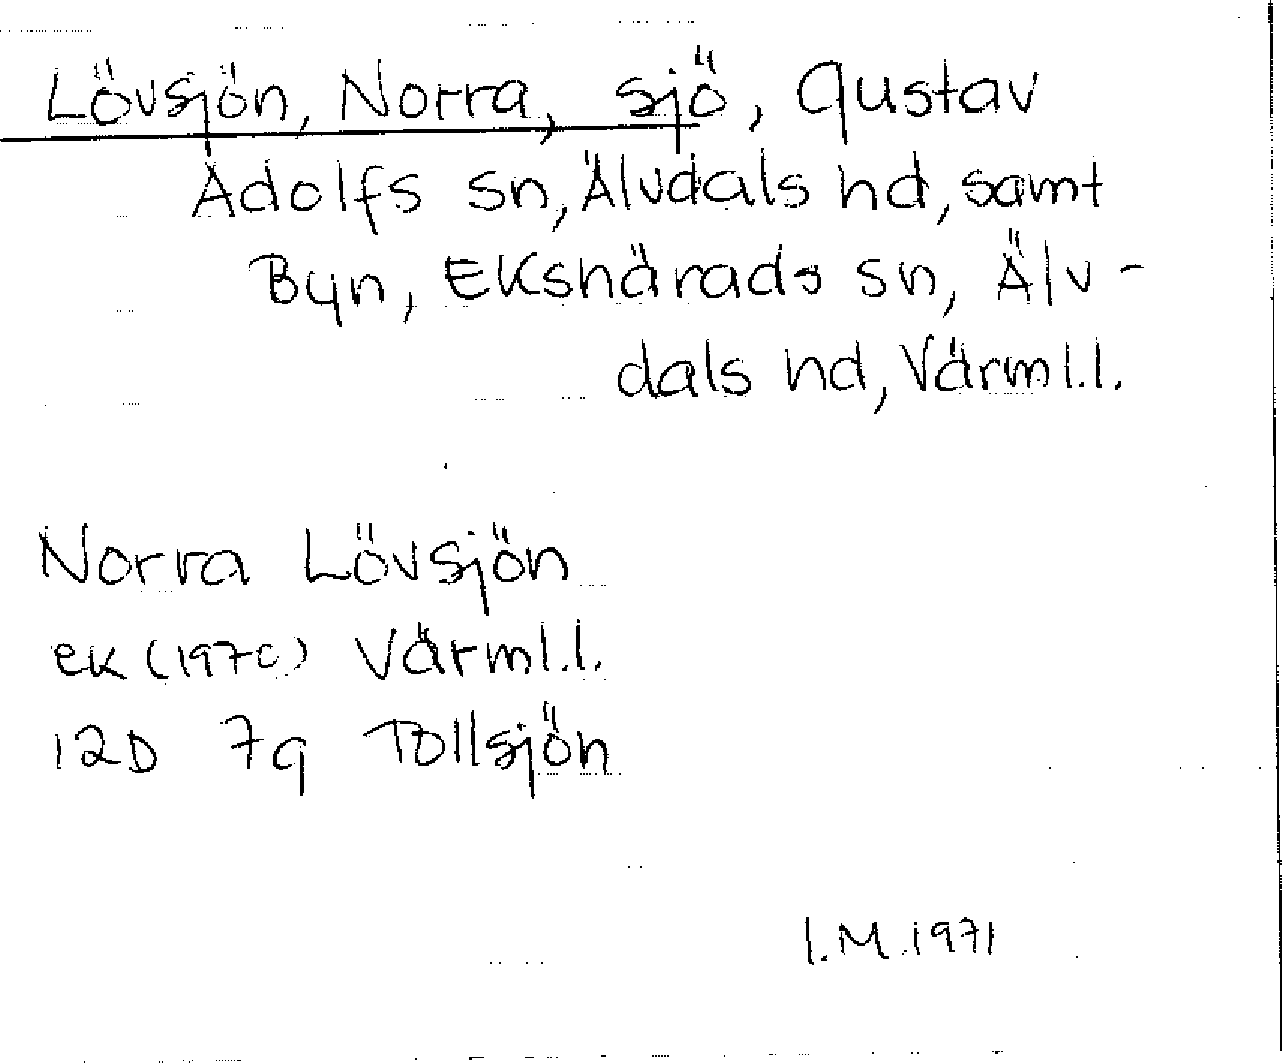 Lövsjön, Norra, sjö, Gustav
Adolfs sn, Älvdals hd, samt
Byn, Ekshärads sn, Älv-
dals hd, Värml.l.
Norra Lövsjön
ek (1970) Värml.l.
12D 7g Tollsjön
I.M. 1971